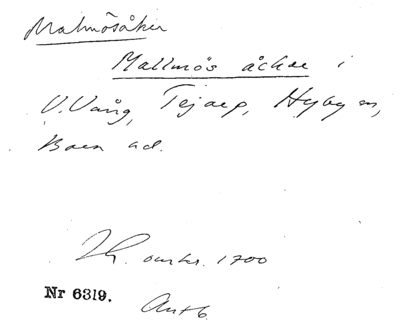 Malmösåker
Mallmös åckae i
V.Vång, Tejarp, Hyby sn,
Bara hd.
Jh. omkr. 1700
Nr 6319.
Avsb.